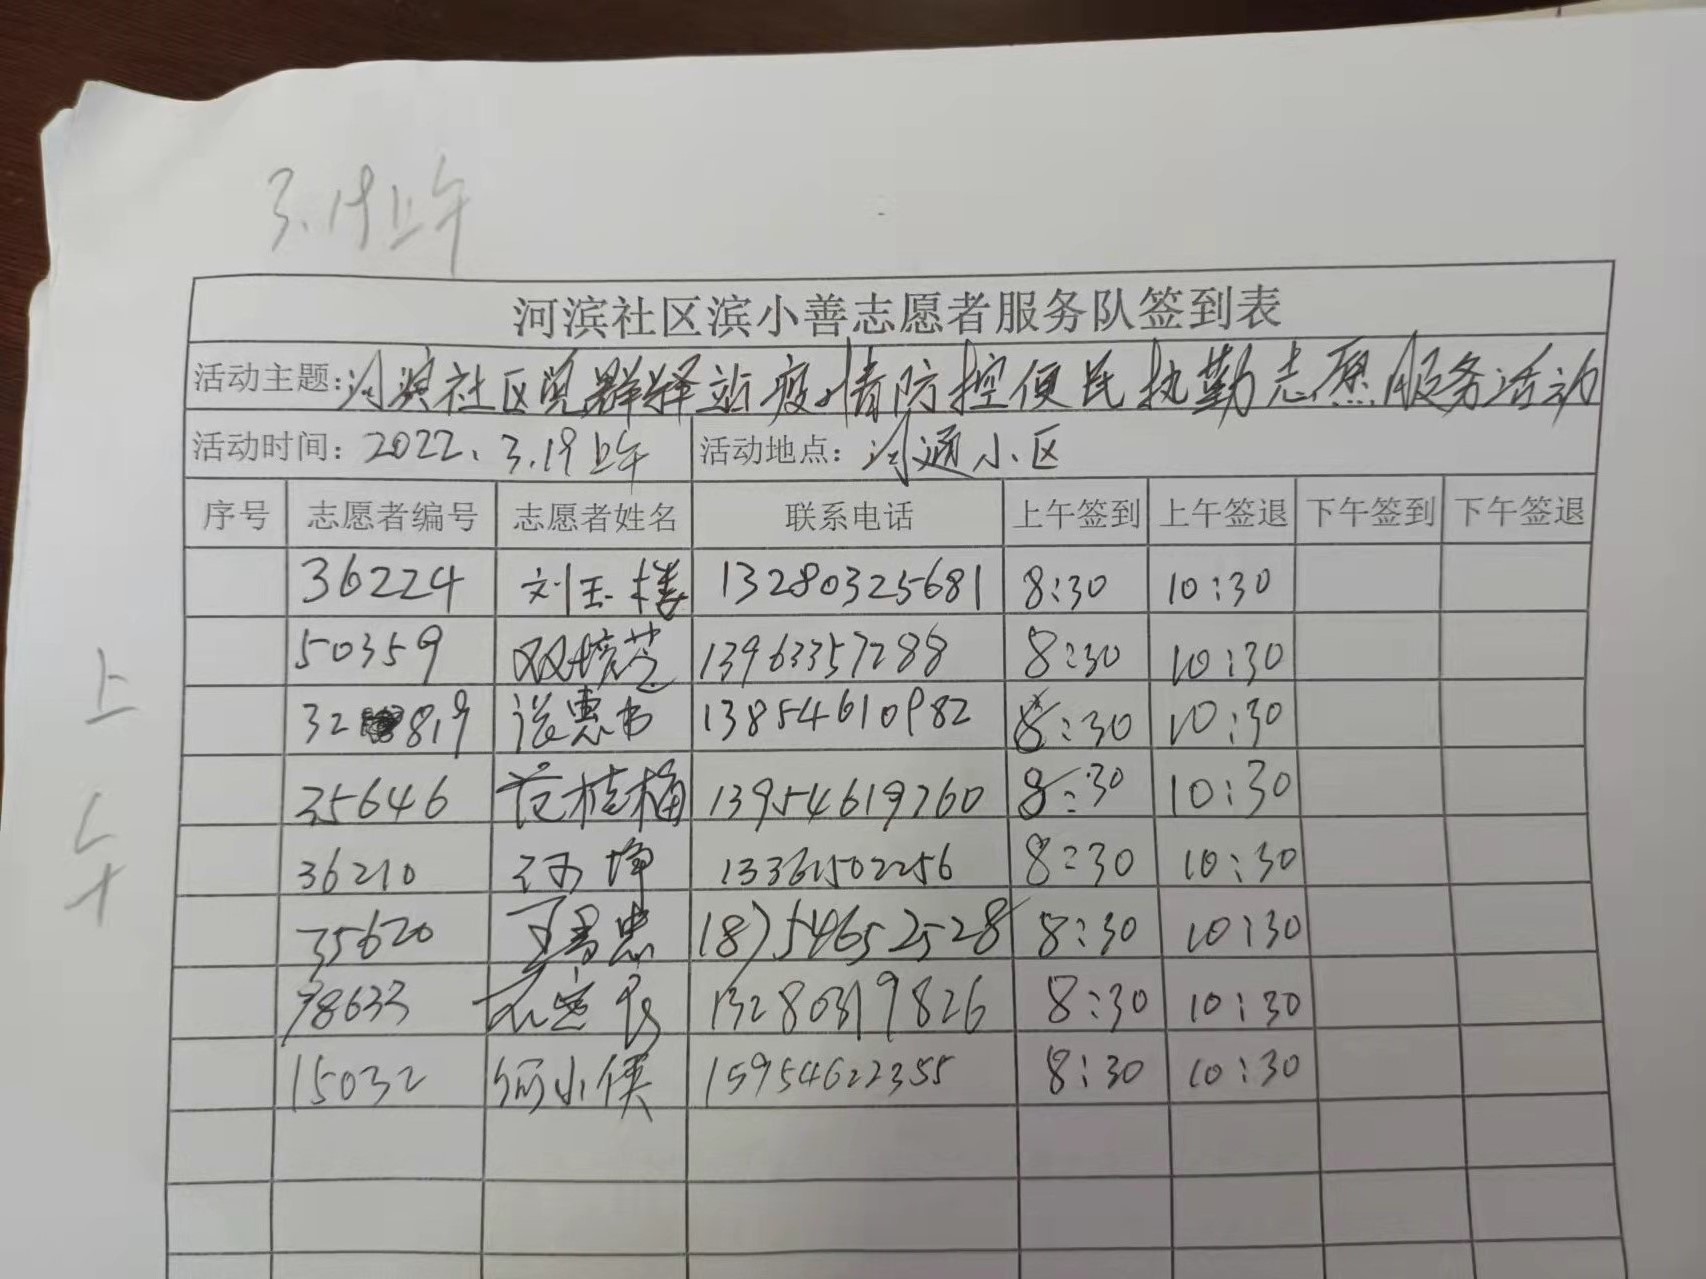 3.19上午
河滨社区滨小善志愿者服务队签到表
活动主题:河滨社区党群驿站疫情防控便民执勤志愿服务活动
活动时间: 2022.3.19上午 活动地点: 河通小区
序号 志愿者编号 志愿者姓名 联系电话 上午签到 上午签退 下午签到 下午签退
36224 刘玉楼 13280325681 8:30 10:30
50359 双培芝 13963357288 8:30 10:30
32 819 惠 13854610982 8:30 10:30
35646 范桂梅 13954619760 8:30 10:30
36210 13361502256 8:30 10:30
35620 18754652528 8:30 10:30
78633 13280319826 8:30 10:30
15032 何小侠 15954622355 8:30 10:30
上午